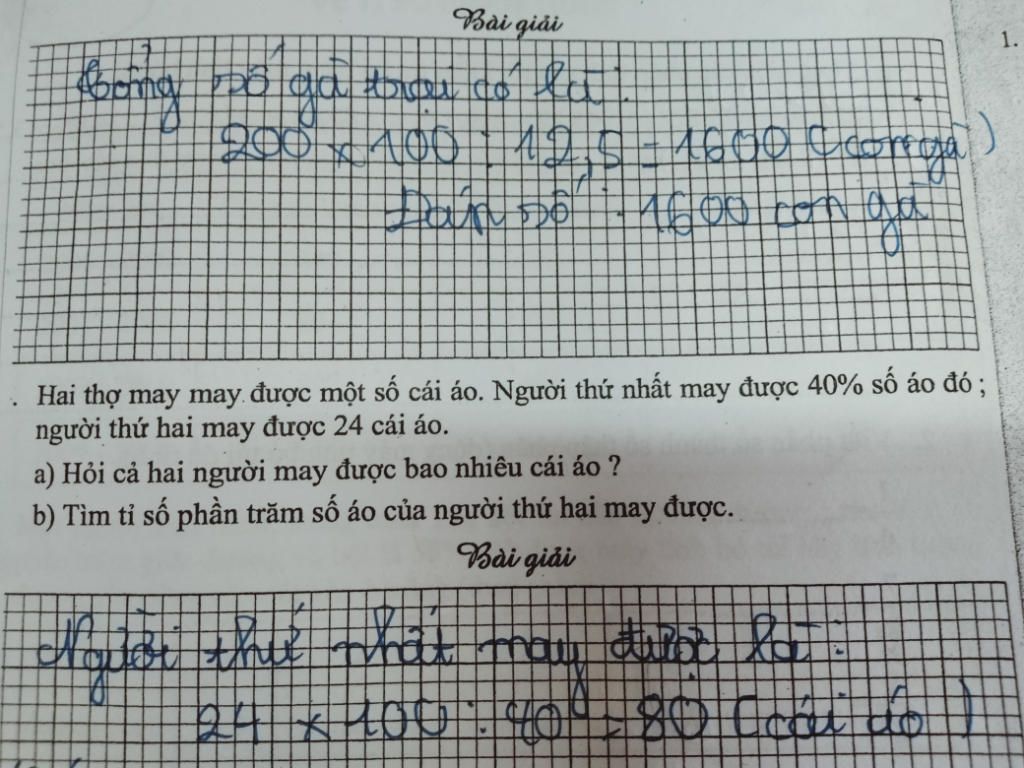 Bài giải
1.
Tổng số gà trại có là:
200 x 100 : 12,5 = 1600 (con gà)
Đán số : 1600 con gà
. Hai thợ may may được một số cái áo. Người thứ nhất may được 40% số áo đó ;
người thứ hai may được 24 cái áo.
a) Hỏi cả hai người may được bao nhiêu cái áo ?
b) Tìm tỉ số phần trăm số áo của người thứ hai may được.
Bài giải
Người thứ nhất may được là:
24 x 100 : 40 = 80 (cái áo)